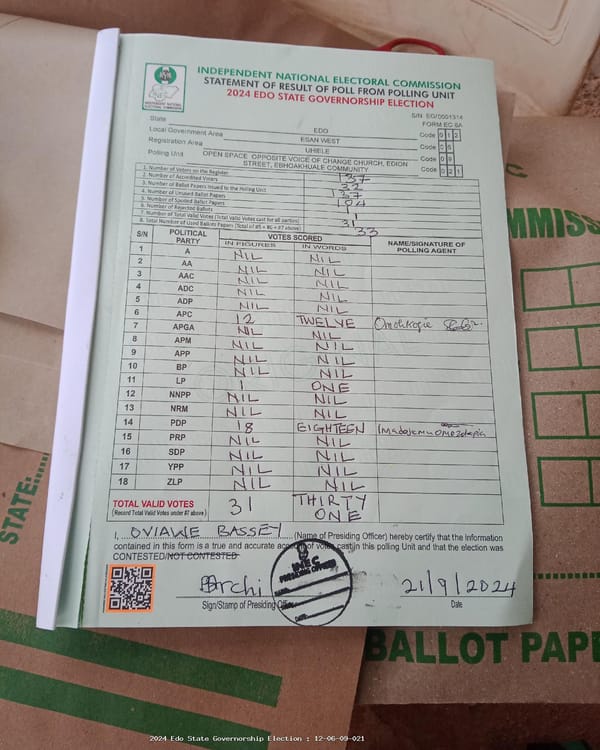 INDEPENDENT NATIONAL ELECTORAL COMMISSION
STATEMENT OF RESULT OF POLL FROM POLLING UNIT
2024 EDO STATE GOVERNORSHIP ELECTION
S/N EG/0001314
FORM EC 8A
State EDO Code 012
Local Government Area ESAN WEST Code 06
Registration Area UHIELE Code 09
Polling Unit OPEN SPACE OPPOSITE VOICE OF CHANGE CHURCH, EDION STREET, EBHOAKHUALE COMMUNITY Code 021
1. Number of Voters on the Register 137
2. Number of Accredited Voters 32
3. Number of Ballot Papers Issued to the Polling Unit 137
4. Number of Unused Ballot Papers 104
5. Number of Spoiled Ballot Papers 1
6. Number of Rejected Ballots 1
7. Number of Total Valid Votes (Total Valid Votes cast for all parties) 31
8. Total Number of Used Ballots Papers (Total of #5 + #6 + #7 above) 33
S/N POLITICAL PARTY VOTES SCORED NAME/SIGNATURE OF POLLING AGENT
IN FIGURES IN WORDS
1 A NIL NIL
2 AA NIL NIL
3 AAC NIL NIL
4 ADC NIL NIL
5 ADP NIL NIL
6 APC 12 TWELVE
7 APGA NIL NIL
8 APM NIL NIL
9 APP NIL NIL
10 BP NIL NIL
11 LP 1 ONE
12 NNPP NIL NIL
13 NRM NIL NIL
14 PDP 18 EIGHTEEN
15 PRP NIL NIL
16 SDP NIL NIL
17 YPP NIL NIL
18 ZLP NIL NIL
TOTAL VALID VOTES 31 THIRTY ONE
(Record Total Valid Votes under #7 above)
I, OVIAWE BASSEY (Name of Presiding Officer) hereby certify that the information
contained in this form is a true and accurate account of votes cast in this polling Unit and that the election was
CONTESTED/NOT CONTESTED
INEC
PRESIDING OFFICER
NAME:
DATE:
21/9/2024
Sign/Stamp of Presiding Officer Date
STATE:
MMISS
BALLOT PAP
2024 Edo State Governorship Election : 12-06-09-021